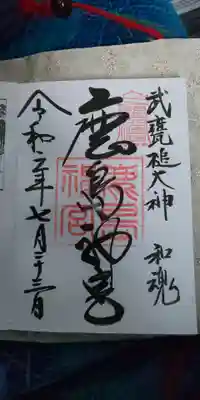 武甕槌大神 和魂
鹿島神宮
鹿島
神宮
令和二年七月二十三日